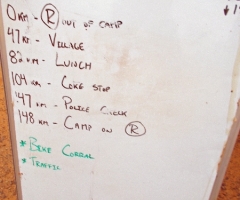 0 KM - R OUT OF CAMP
47 KM - VILLAGE
82 KM - LUNCH
104 KM - COKE STOP
147 KM - POLICE CHECK
148 KM - CAMP ON R
* BIKE CORRAL
* TRAFFIC